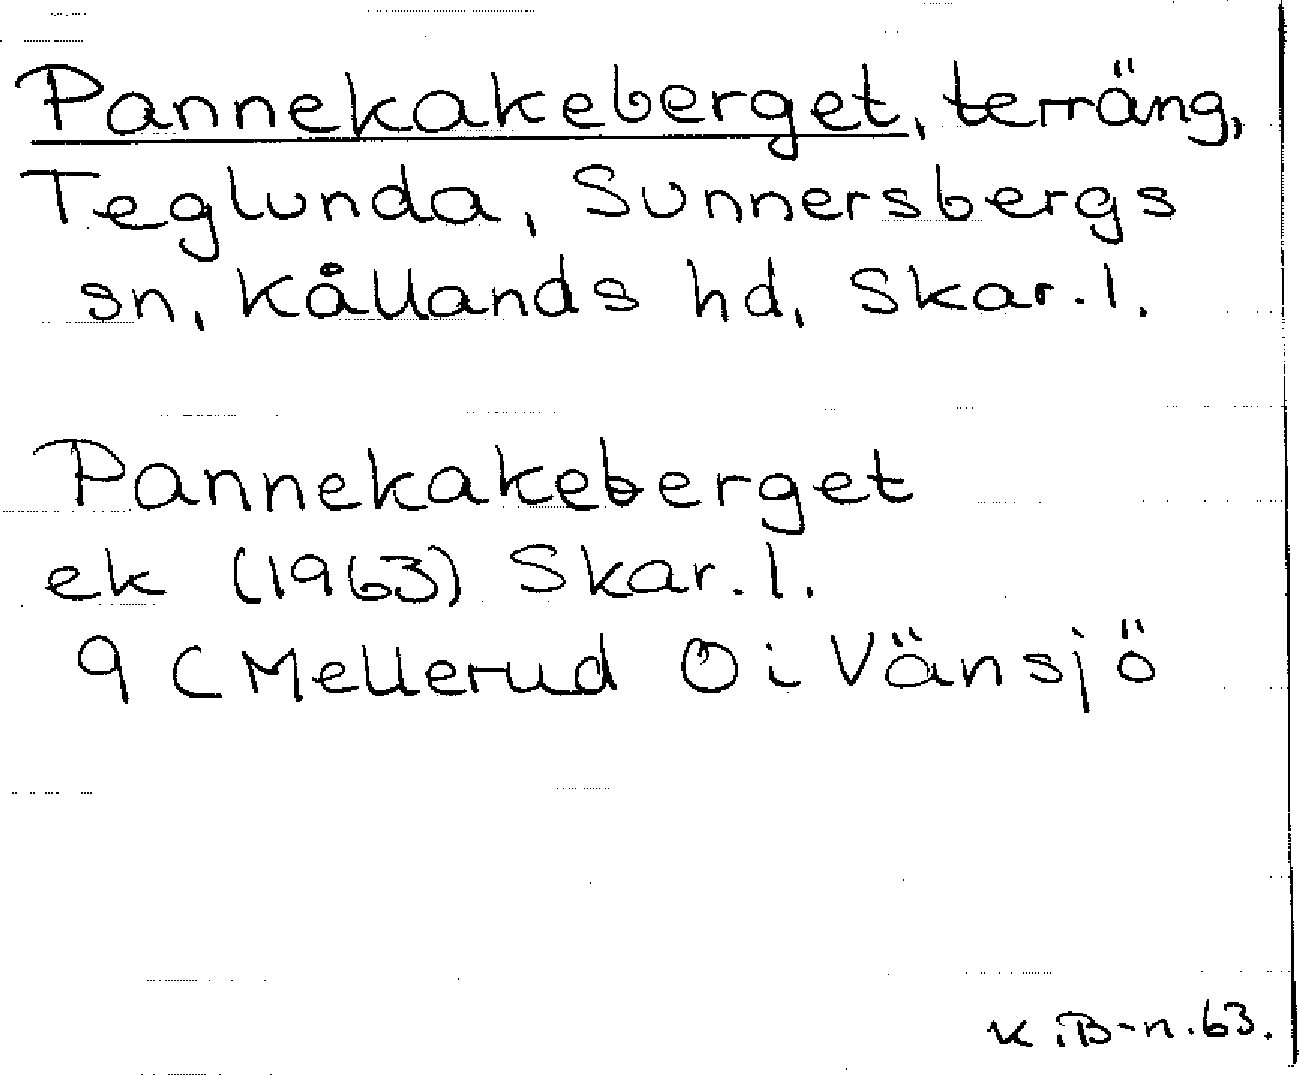 Pannekakeberget, terräng,
Teglunda, Sunnersbergs
sn, Kållands hd, Skar. l.
Pannekakeberget
ek (1963) Skar. l.
9 C Mellerud Ö i Vänsjö
K. B-n. 63.